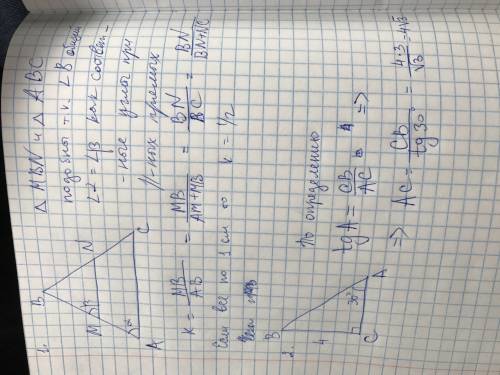 1.
B
M
N
β
α
A
C
△ MBN и △ ABC
подобны т.к. ∠B общий
∠α = ∠β как соответ-
-ные углы при
//-ных прямых
K = MB/AB = MB/AM+MB = BN/BC = BN/BN+NC
Если все по 1 см ∞ k = 1/2
2.
B
4
30°
C
A
По определению
tg A = CB/AC =>
=> AC = CB/tg 30° = 4·3/√3 = 4√3